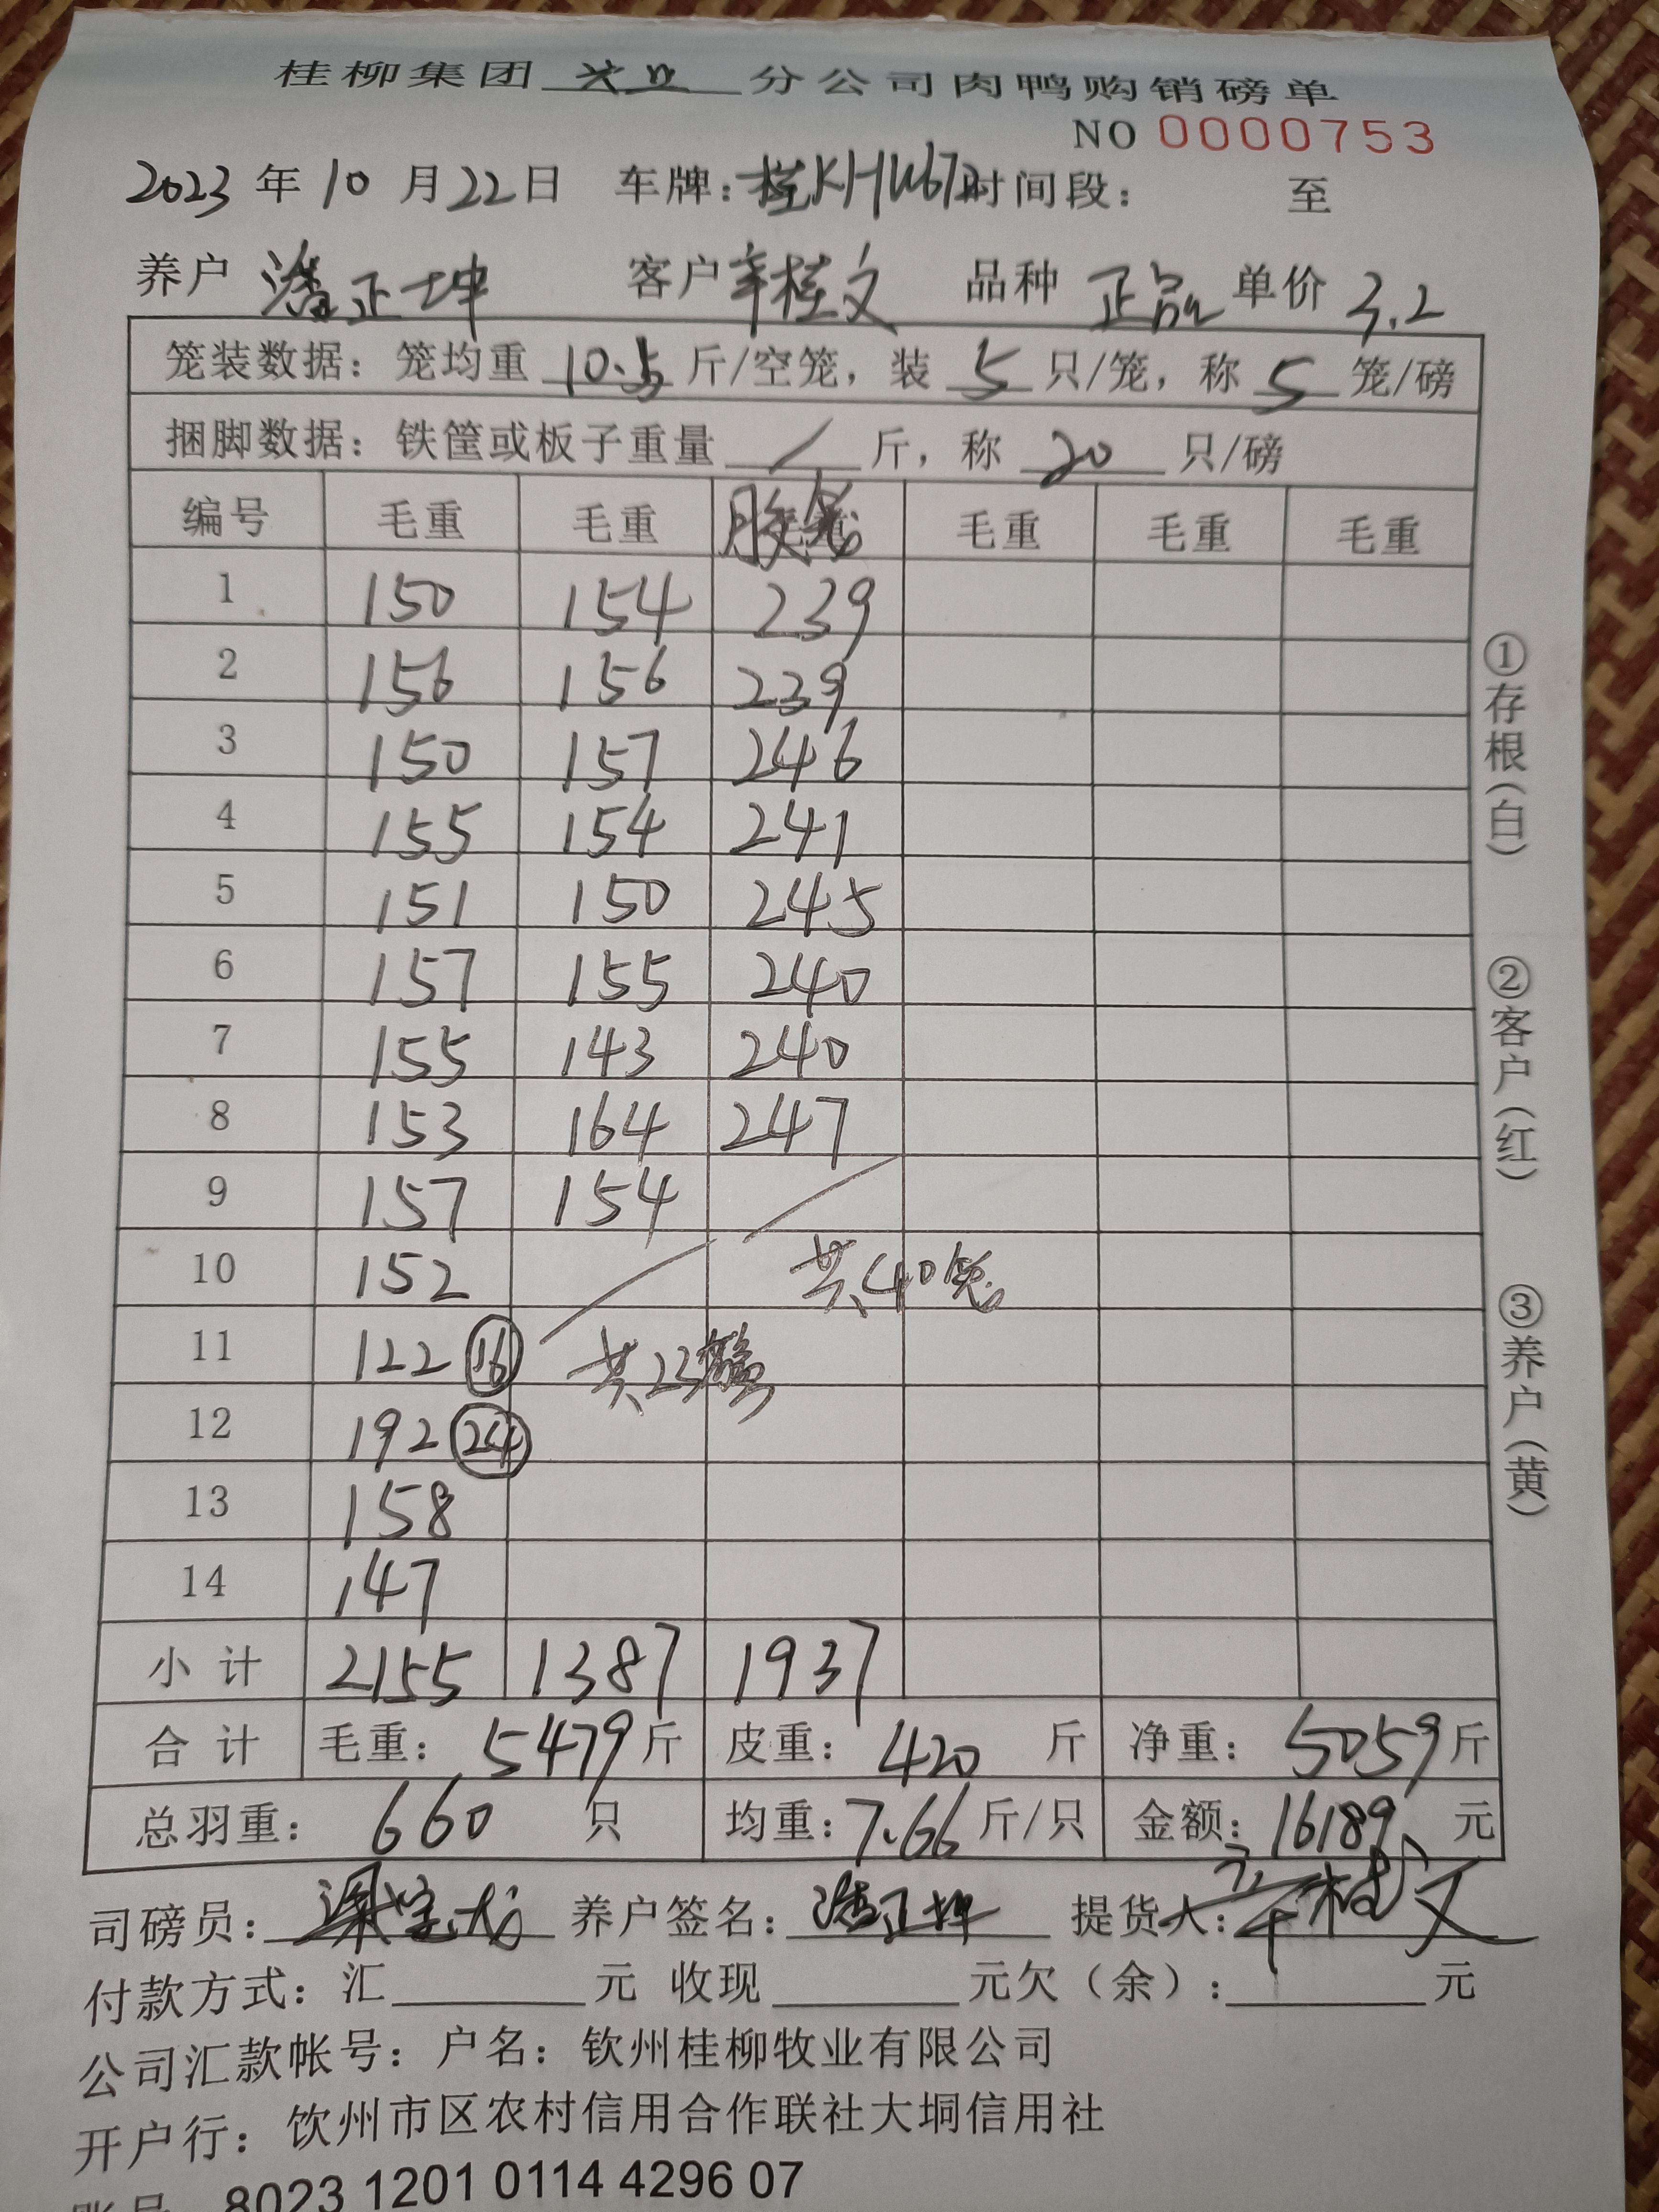 桂柳集团 分公司肉鸭购销磅单
NO 0000753
2023 年 10 月 22 日 车牌: 时间段: 至
养户 潘正坤 客户 辛桂文 品种 正品 单价 3.2
笼装数据: 笼均重 10.5 斤/空笼, 装 5 只/笼, 称 5 笼/磅
捆脚数据: 铁筐或板子重量 / 斤, 称 20 只/磅
编号 毛重 毛重 胶笼 毛重 毛重 毛重
1 150 154 239
2 156 156 239
3 150 157 246
4 155 154 241
5 151 150 245
6 157 155 240
7 155 143 240
8 153 164 247
9 157 154
10 152 共40笼
11 122 16 共23
12 192 24
13 158
14 147
小计 2155 1387 1937
合计 毛重: 5479 斤 皮重: 420 斤 净重: 5059 斤
总羽重: 660 只 均重: 7.66 斤/只 金额: 16189 元
司磅员: 养户签名: 潘正坤 提货人: 辛桂文
付款方式: 汇 元 收现 元欠(余): 元
公司汇款帐号: 户名: 钦州桂柳牧业有限公司
开户行: 钦州市区农村信用合作联社大垌信用社
账号 8023 1201 0114 4296 07
①存根(白)
②客户(红)
③养户(黄)